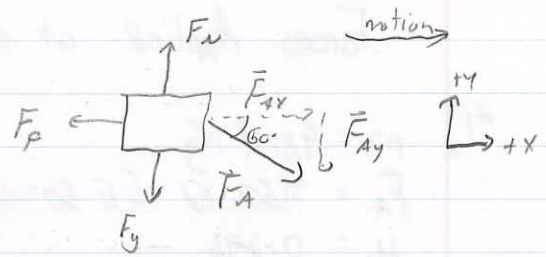 F_N
motion
F⃗_Ax
+Y
F_f
60°
F⃗_Ay
+X
F⃗_A
F_g